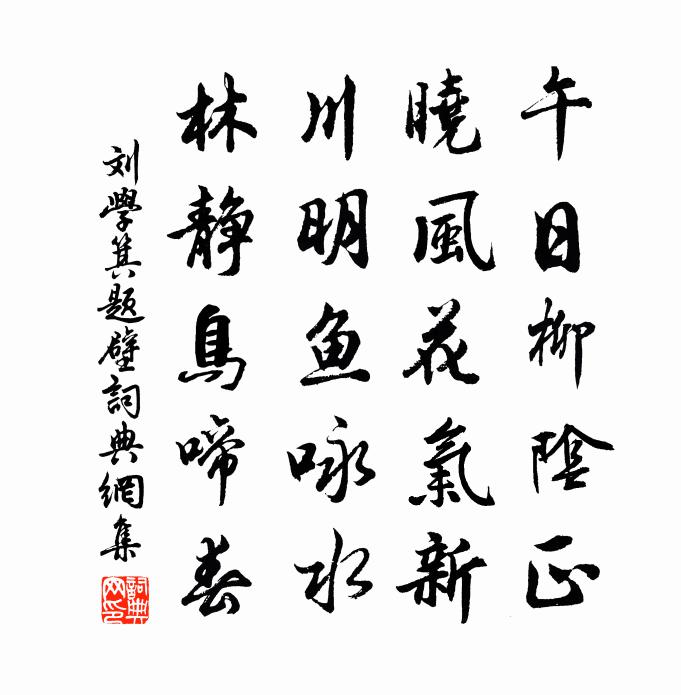 午日柳陰正
曉風花氣新
川明魚咏水
林靜鳥啼春
刘學箕題壁詞典網集
詞典網印